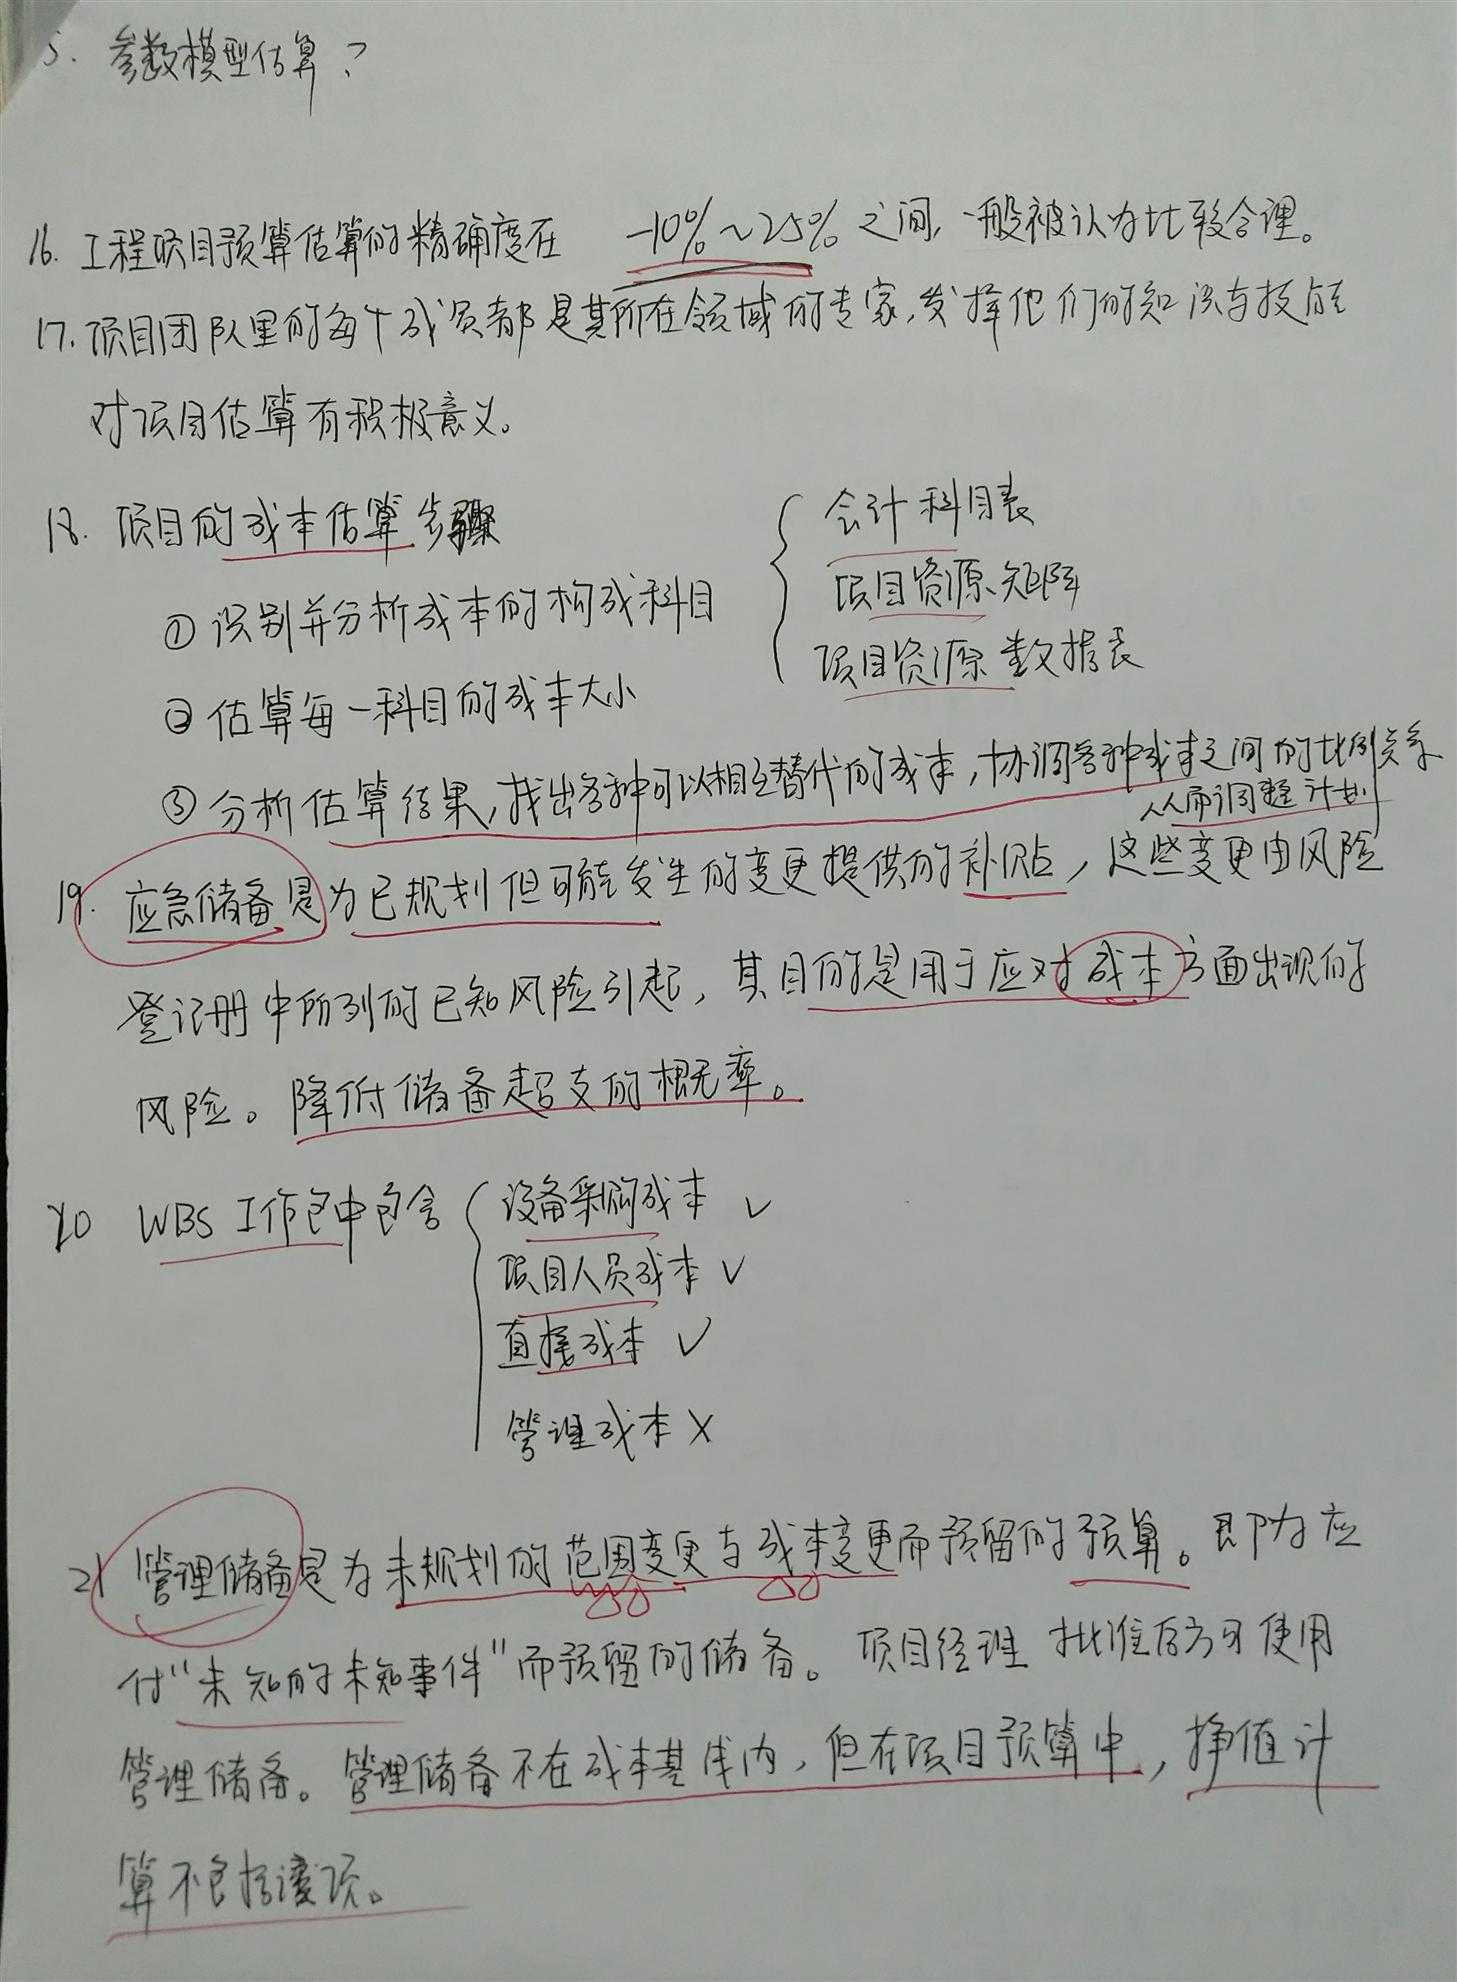 5. 参数模型估算?
16. 工程项目预算估算的精确度在 -10%~25% 之间,一般被认为比较合理。
17. 项目团队里的每个成员都是其所在领域的专家,发挥他们的知识与技能
对项目估算有积极意义。
18. 项目的成本估算步骤
① 识别并分析成本的构成科目
会计科目表
项目资源矩阵
项目资源数据表
② 估算每一科目的成本大小
③ 分析估算结果,找出各种可以相互替代的成本,协调各种成本之间的比例关系
从而调整计划
19. 应急储备是为已规划但可能发生的变更提供的补贴,这些变更由风险
登记册中所列的已知风险引起,其目的是用于应对成本方面出现的
风险。降低储备超支的概率。
20 WBS工作包中包含
设备采购成本 ✓
项目人员成本 ✓
直接成本 ✓
管理成本 ×
21 管理储备是为未规划的范围变更与成本变更而预留的预算。即为应
付“未知的未知事件”而预留的储备。项目经理 批准后方可使用
管理储备。管理储备不在成本基线内,但在项目预算中,挣值计
算不包括该项。